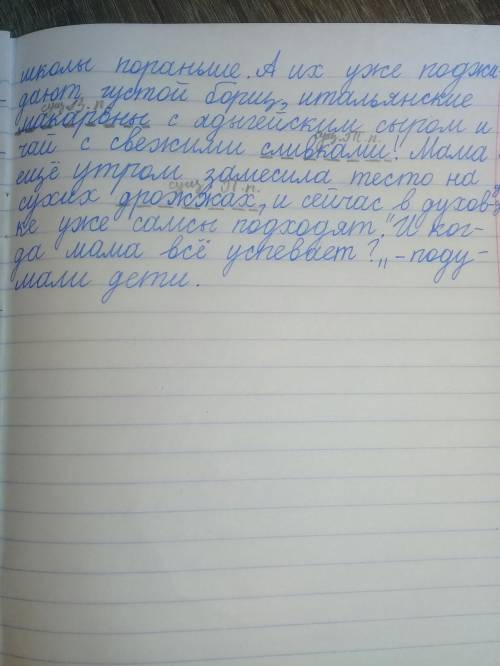 школы пораньше. А их уже поджи-
дают густой борщ, итальянские
сущ. В. п.
макароны с адыгейским сыром и
сущ. Т. п.
чай с свежими сливками! Мама
ещё утром замесила тесто на
сущ. П. п.
сухих дрожжах, и сейчас в духов-
ке уже самсы подходят. "И ког-
да мама всё успевает?„ - поду-
мали дети.